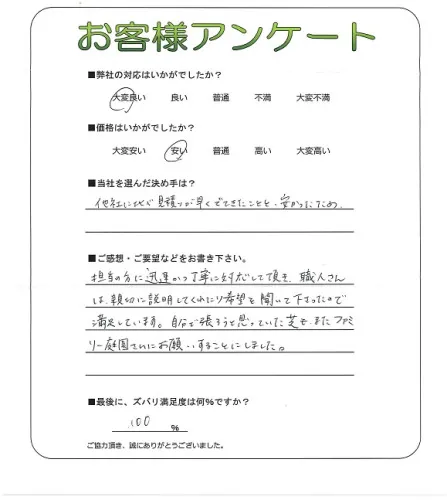 お客様アンケート
■弊社の対応はいかがでしたか？
大変良い 良い 普通 不満 大変不満
■価格はいかがでしたか？
大変安い 安い 普通 高い 大変高い
■当社を選んだ決め手は？
他社に比べ見積りが早くできたことと、安かったため。
■ご感想・ご要望などをお書き下さい。
担当の方に迅速かつ丁寧に対応して頂き、職人さん
は、親切に説明してくれたり希望を聞いて下さったので
満足しています。自分で張ろうと思っていた芝も、またファミ
リー庭園さんにお願いすることにしました。
■最後に、ズバリ満足度は何%ですか？
100 %
ご協力頂き、誠にありがとうございました。